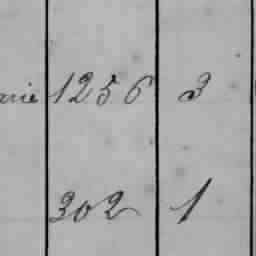 arie 1256 3
302 1